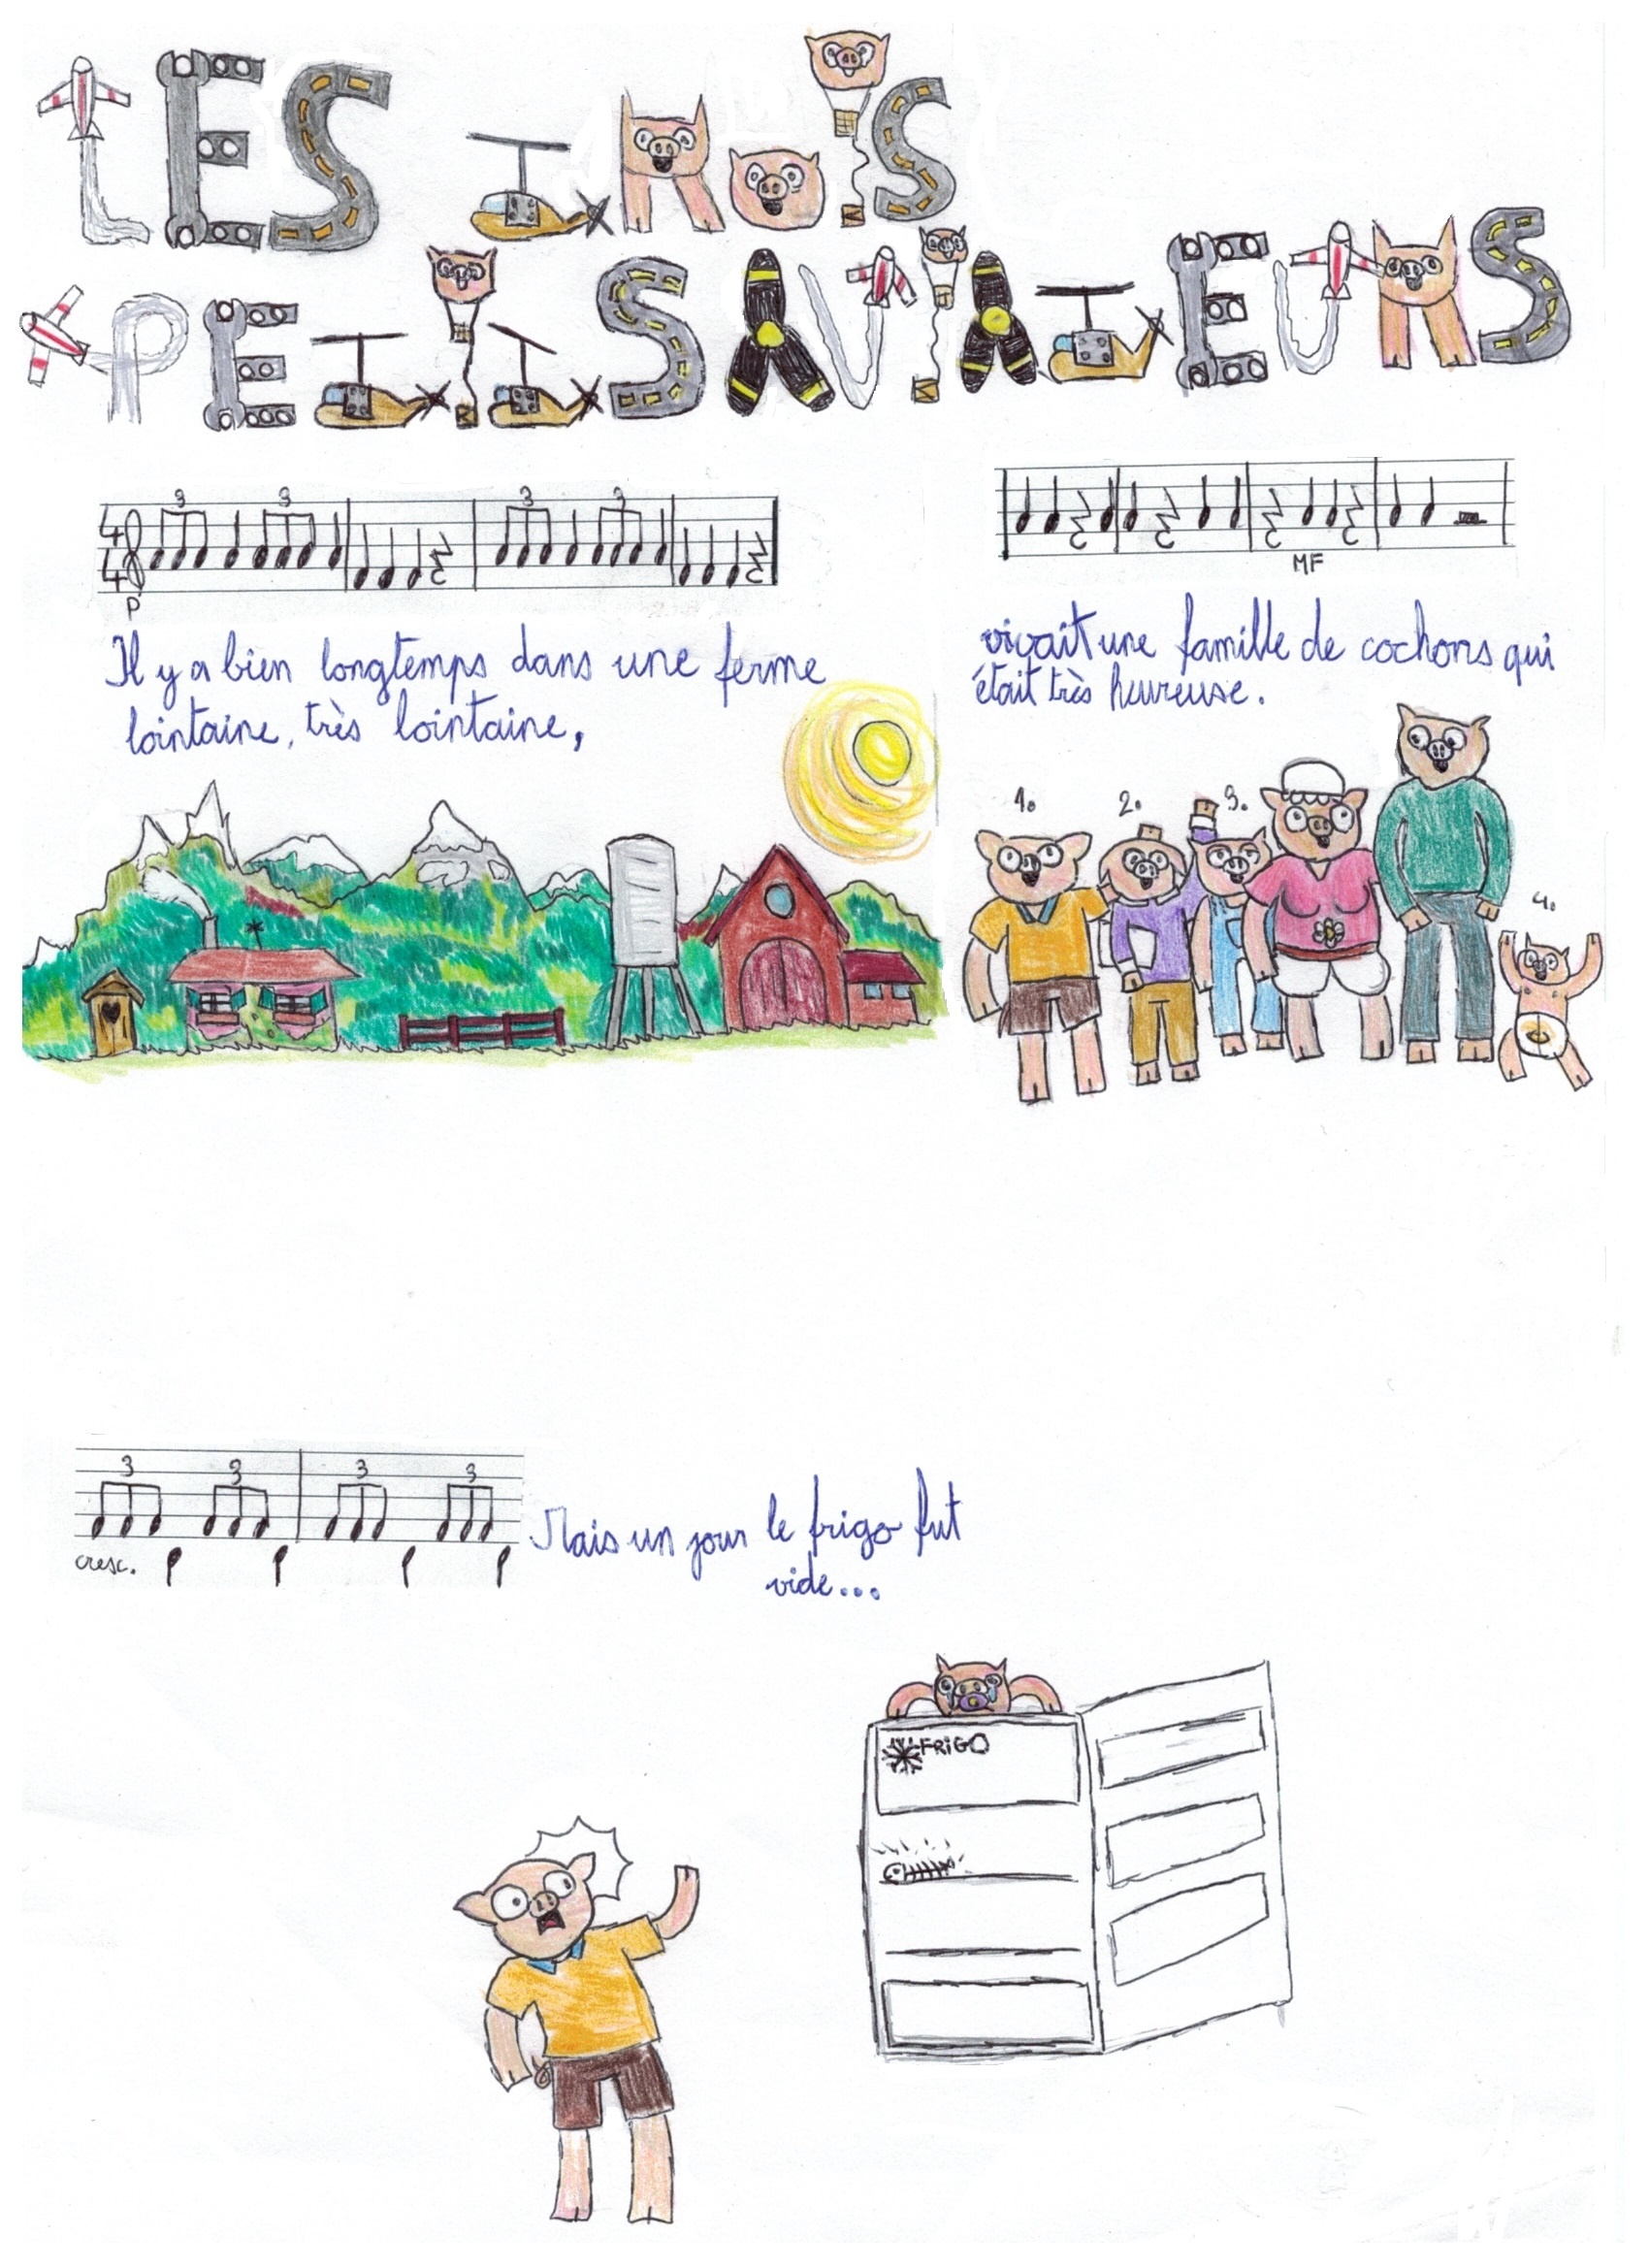 LES TROIS
PETITS AVIATEURS
3 3 3 3
4
4
P
MF
Il y a bien longtemps dans une ferme
lointaine, très lointaine,
vivait une famille de cochons qui
était très heureuse.
1. 2. 3.
4.
3 3 3 3
cresc.
Mais un jour le frigo fut
vide...
FRIGO